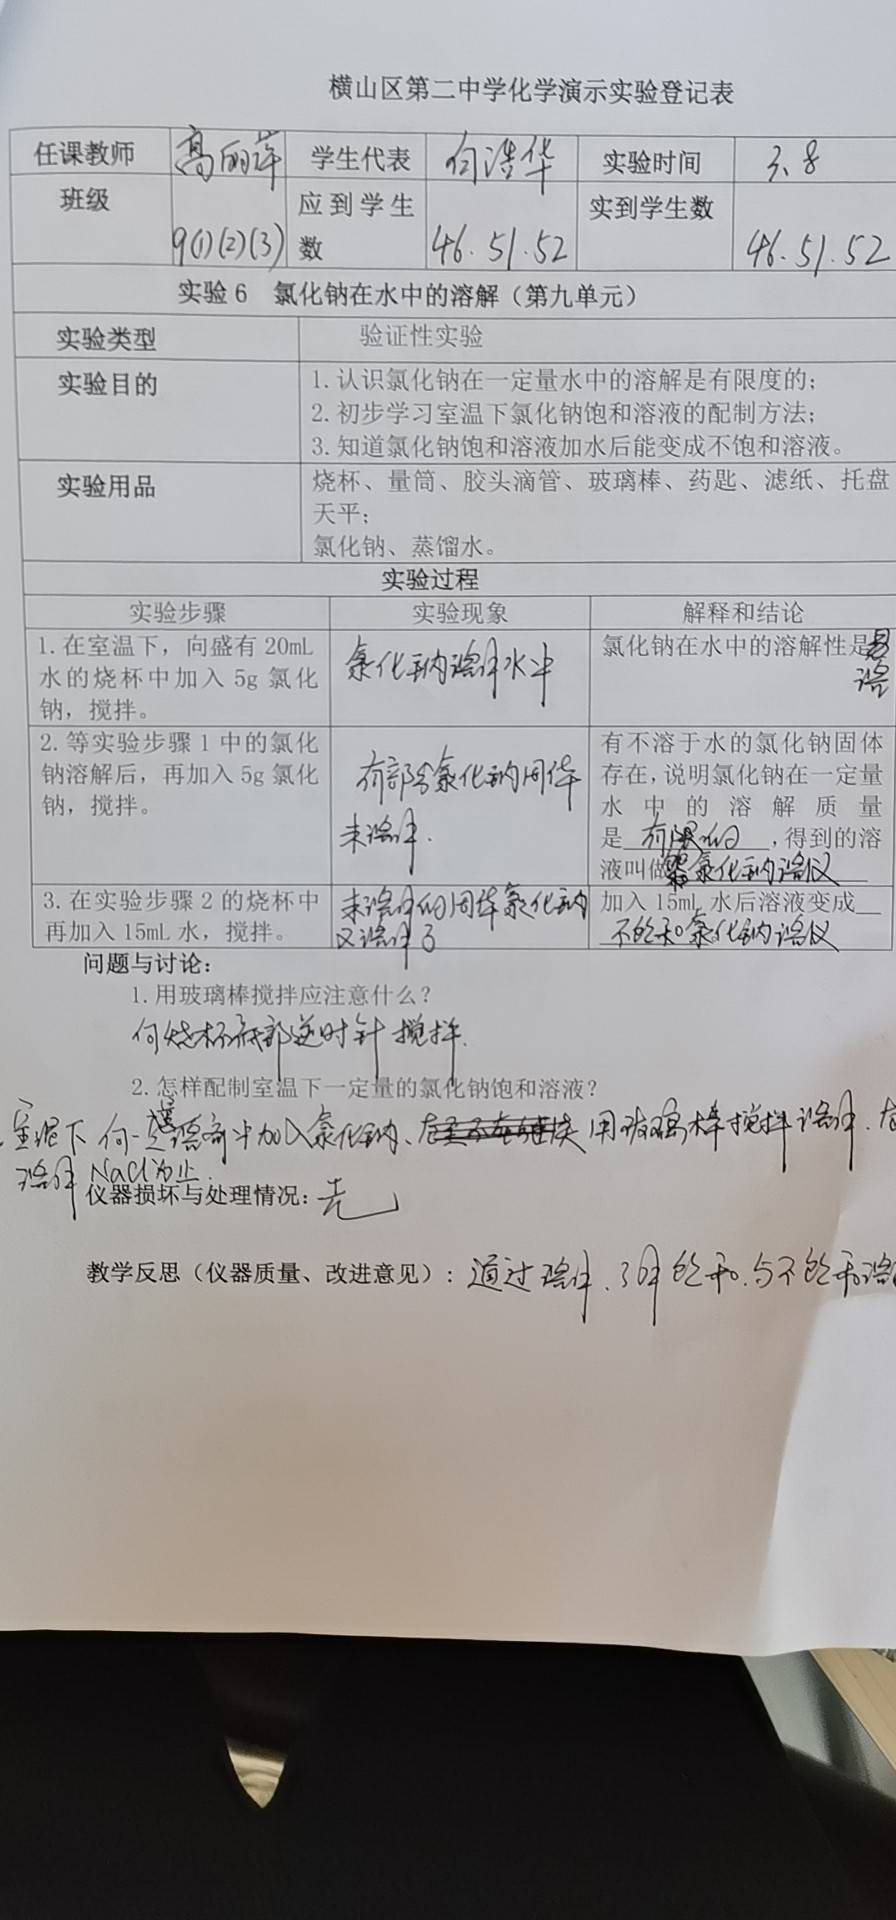 横山区第二中学化学演示实验登记表
任课教师 高丽萍 学生代表 向浩华 实验时间 3.8
班级 9(1)(2)(3) 应到学生数 46.51.52 实到学生数 46.51.52
实验6 氯化钠在水中的溶解（第九单元）
实验类型 验证性实验
实验目的 1.认识氯化钠在一定量水中的溶解是有限度的；
2.初步学习室温下氯化钠饱和溶液的配制方法；
3.知道氯化钠饱和溶液加水后能变成不饱和溶液。
实验用品 烧杯、量筒、胶头滴管、玻璃棒、药匙、滤纸、托盘
天平；
氯化钠、蒸馏水。
实验过程
实验步骤 实验现象 解释和结论
1.在室温下，向盛有20mL
水的烧杯中加入5g氯化
钠，搅拌。
氯化钠溶解水中
氯化钠在水中的溶解性是易
溶
2.等实验步骤1中的氯化
钠溶解后，再加入5g氯化
钠，搅拌。
有部分氯化钠固体
未溶解.
有不溶于水的氯化钠固体
存在，说明氯化钠在一定量
水中的溶解质量
是有限的，得到的溶
液叫做氯化钠溶液
3.在实验步骤2的烧杯中
再加入15mL水，搅拌。
未溶解的固体氯化钠
又溶解了
加入15mL水后溶液变成
不饱和氯化钠溶液
问题与讨论：
1.用玻璃棒搅拌应注意什么？
向烧杯底部逆时针搅拌.
2.怎样配制室温下一定量的氯化钠饱和溶液？
室温下向一定 中加入氯化钠、 用玻璃棒搅拌溶解.
溶解NaCl为止.
仪器损坏与处理情况：无
教学反思（仪器质量、改进意见）：通过溶解.了解饱和.与不饱和溶